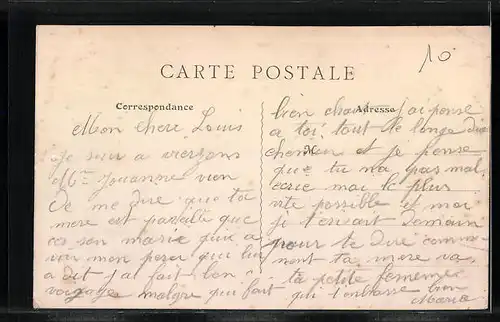 10
CARTE POSTALE
Correspondance
Mon chere Louis
je suis a vierzons
Mme Jouanne vien
de me dire que ta
mere est partie que
ces son marie qui a
mon qui lui
a dit j'ai fait bon
voyage malgre qui fait
Adresse
bien chaud j'ai pense
a toi tout le long du
M
chemin et je pense
que tu ma pas mal
ecrie mai le plus
vite possible et moi
je t'ecirait Demain
pour te dire comme
nont ta mere va
ta petite femme
qui t'enbrasse bien
Maria